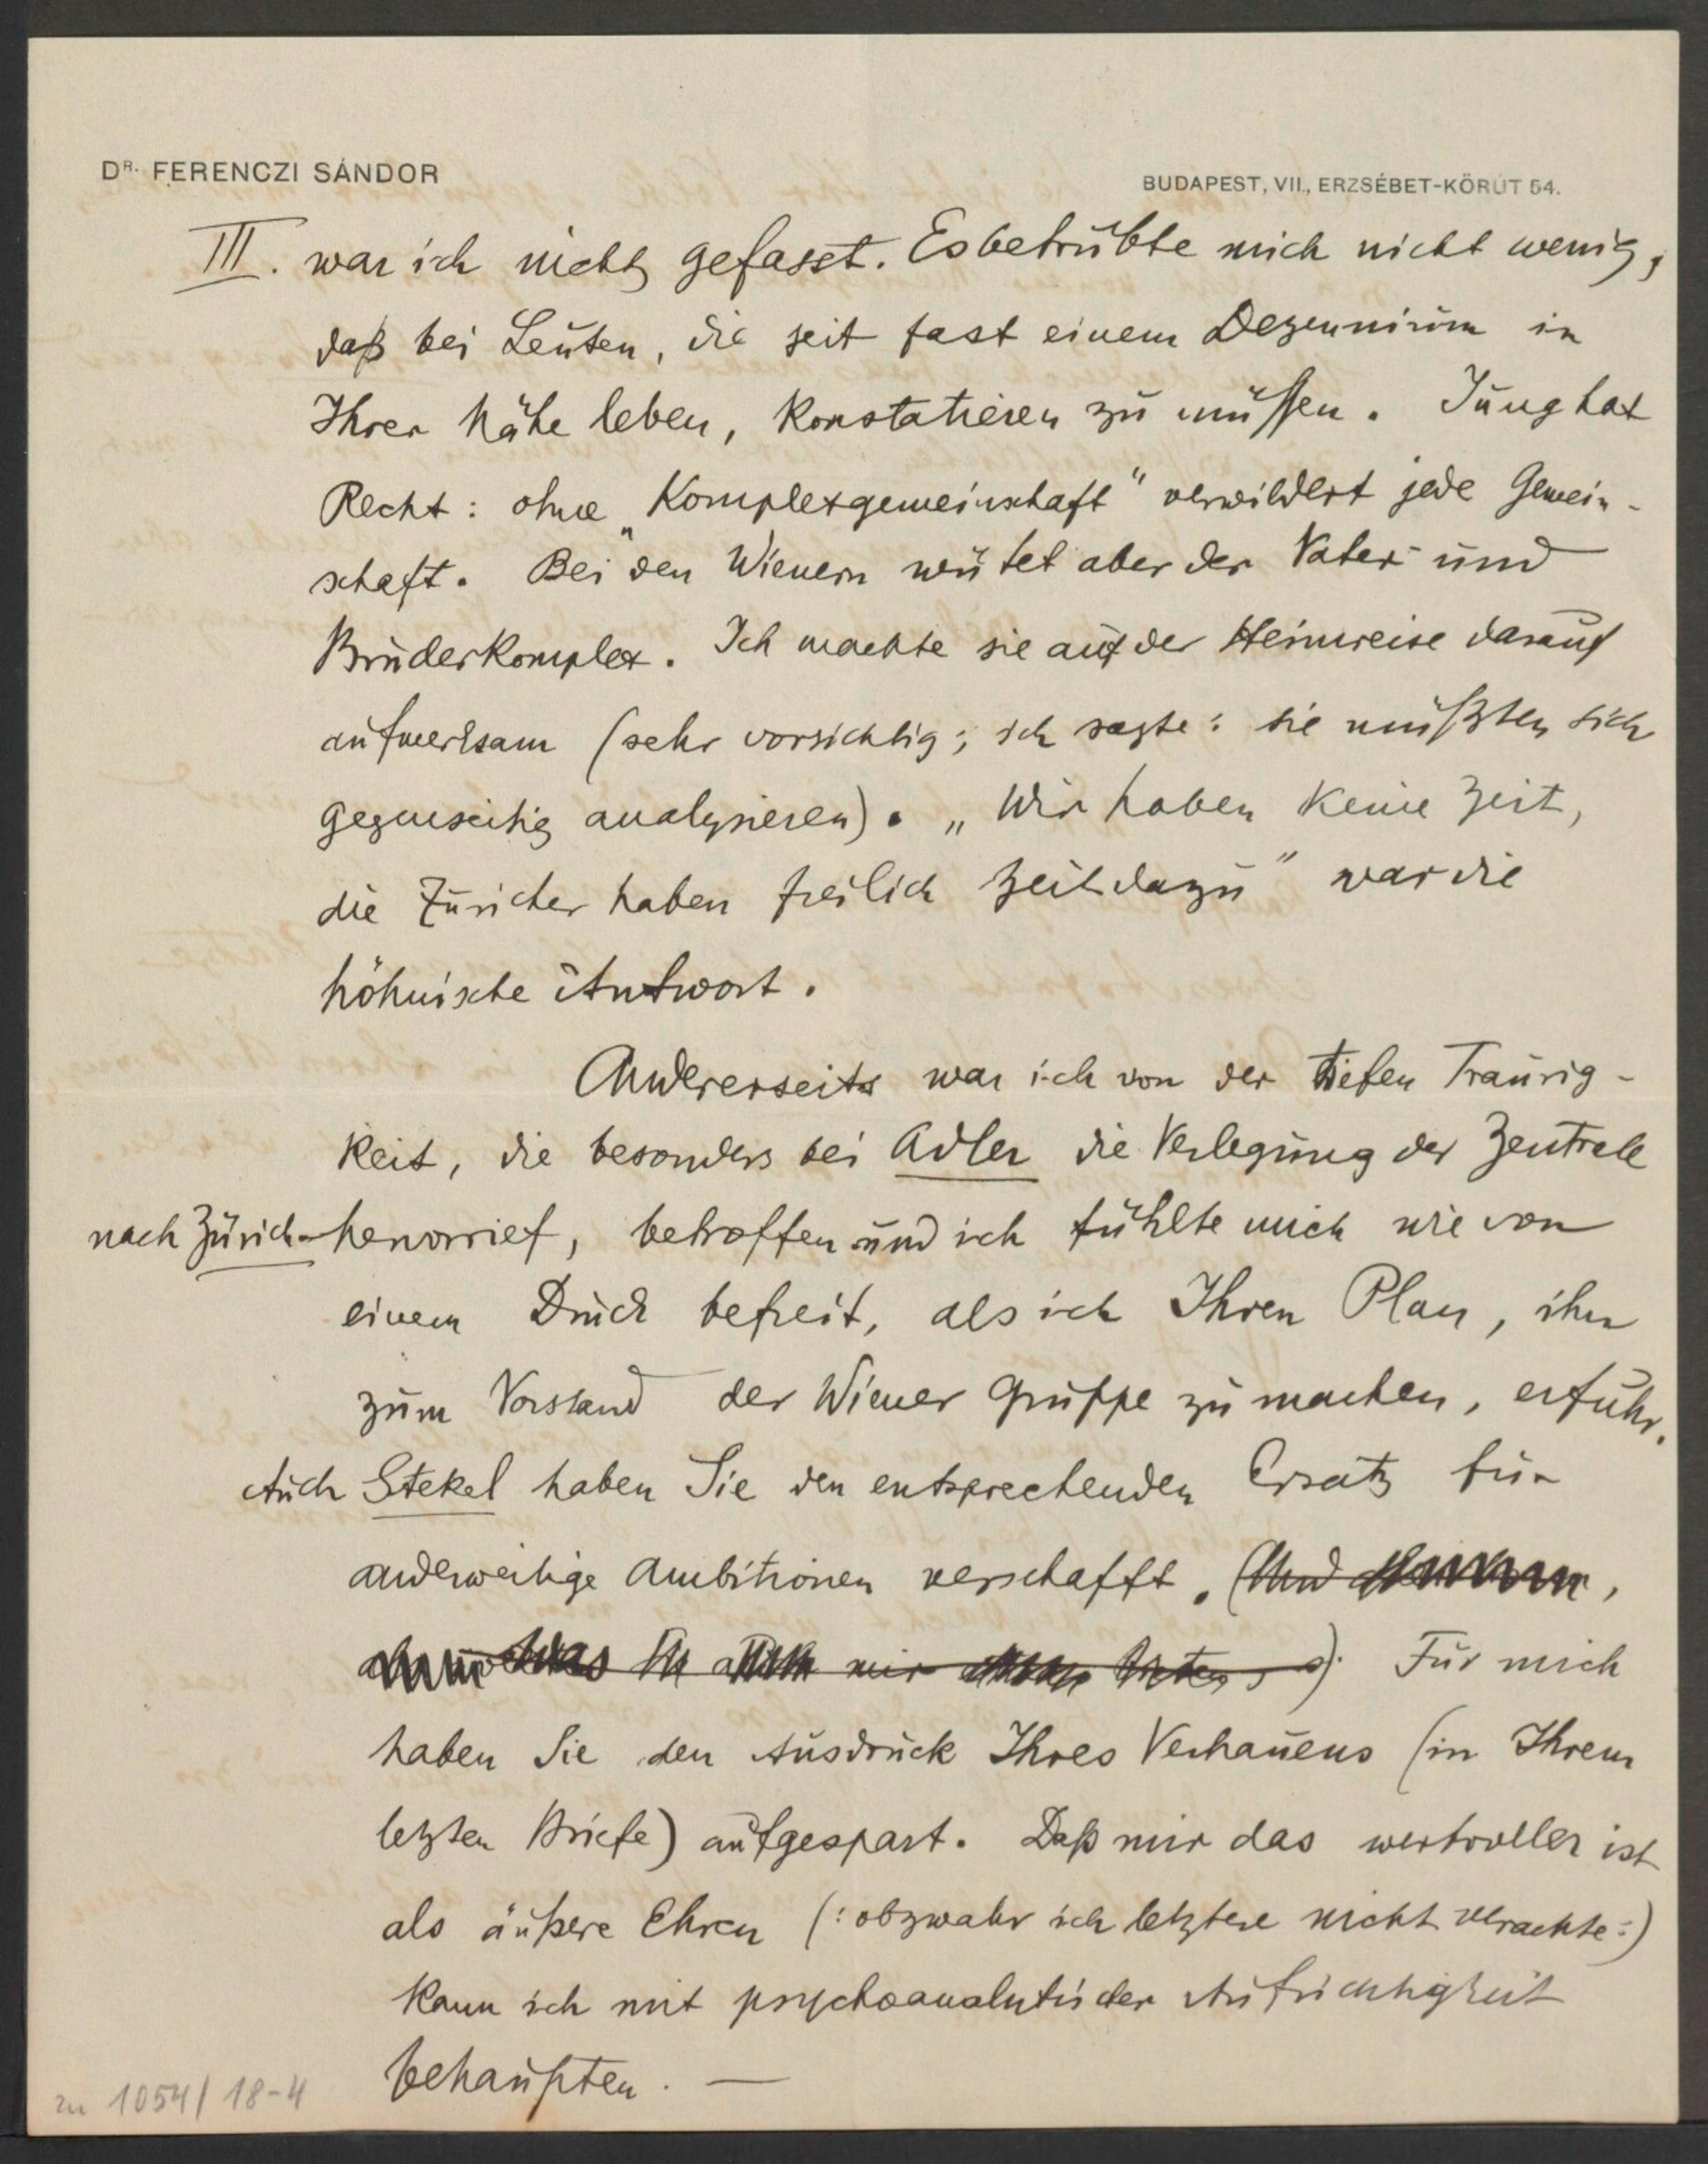 DR. FERENCZI SÁNDOR
BUDAPEST, VII., ERZSÉBET-KÖRÚT 54.
III. war ich nicht gefasst. Es betrübte mich nicht wenig,
daß bei Leuten, die seit fast einem Dezennium in
Ihrer Nähe leben, konstatieren zu müssen. Jung hat
Recht: ohne „Komplexgemeinschaft" verwildert jede Gemein-
schaft. Bei den Wienern wütet aber der Vater- und
Bruderkomplex. Ich machte sie auf der Heimreise darauf
aufmerksam (sehr vorsichtig; ich sagte: sie müßten sich
gegenseitig analysieren). „Wir haben keine Zeit,
die Züricher haben freilich Zeit dazu" war die
höhnische Antwort.
Andererseits war ich von der tiefen Traurig-
keit, die besonders bei Adler die Verlegung der Zentrale
nach Zürich hervorrief, betroffen und ich fühlte mich wie von
einem Druck befreit, als ich Ihren Plan, ihn
zum Vorstand der Wiener Gruppe zu machen, erfuhr.
Auch Stekel haben Sie den entsprechenden Ersatz für
anderweitige Ambitionen verschafft. (Und
mir ). Für mich
haben Sie den Ausdruck Ihres Vertrauens (in Ihrem
letzten Briefe) aufgespart. Daß mir das wertvoller ist
als äußere Ehren (: obzwahr ich letztere nicht verachte :)
kann ich mit psychoanalytischer Aufrichtigkeit
behaupten. —
zu 1054/18-4